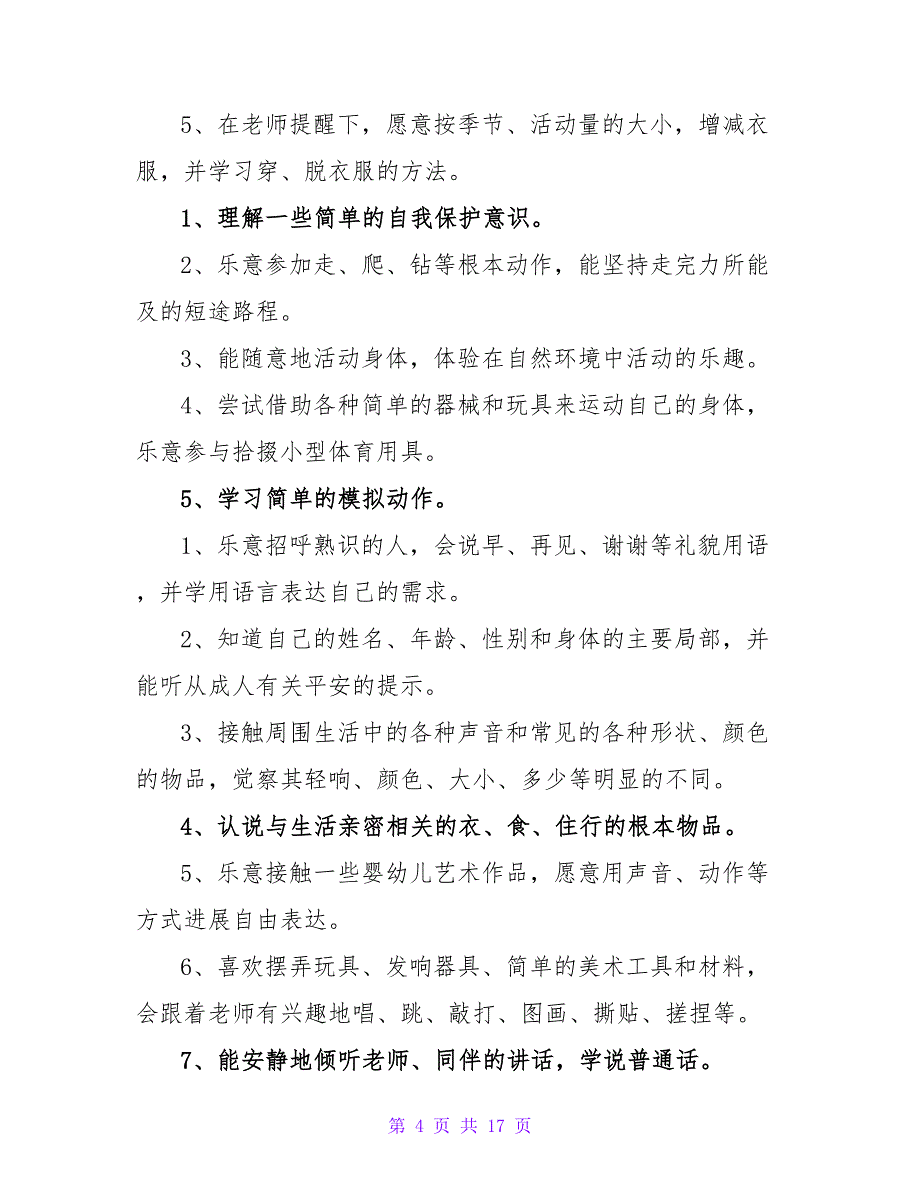 5、在老师提醒下，愿意按季节、活动量的大小，增减衣
服，并学习穿、脱衣服的方法。
1、理解一些简单的自我保护意识。
2、乐意参加走、爬、钻等根本动作，能坚持走完力所能
及的短途路程。
3、能随意地活动身体，体验在自然环境中活动的乐趣。
4、尝试借助各种简单的器械和玩具来运动自己的身体，
乐意参与拾掇小型体育用具。
5、学习简单的模拟动作。
1、乐意招呼熟识的人，会说早、再见、谢谢等礼貌用语
，并学用语言表达自己的需求。
2、知道自己的姓名、年龄、性别和身体的主要局部，并
能听从成人有关平安的提示。
3、接触周围生活中的各种声音和常见的各种形状、颜色
的物品，觉察其轻响、颜色、大小、多少等明显的不同。
4、认说与生活亲密相关的衣、食、住行的根本物品。
5、乐意接触一些婴幼儿艺术作品，愿意用声音、动作等
方式进展自由表达。
6、喜欢摆弄玩具、发响器具、简单的美术工具和材料，
会跟着老师有兴趣地唱、跳、敲打、图画、撕贴、搓捏等。
7、能安静地倾听老师、同伴的讲话，学说普通话。
第 4 页 共 17 页